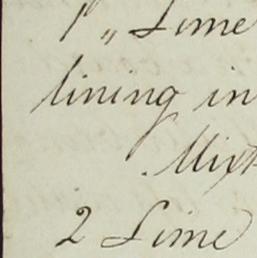 1 „ Lime
lining in
Mixt
2 Lime